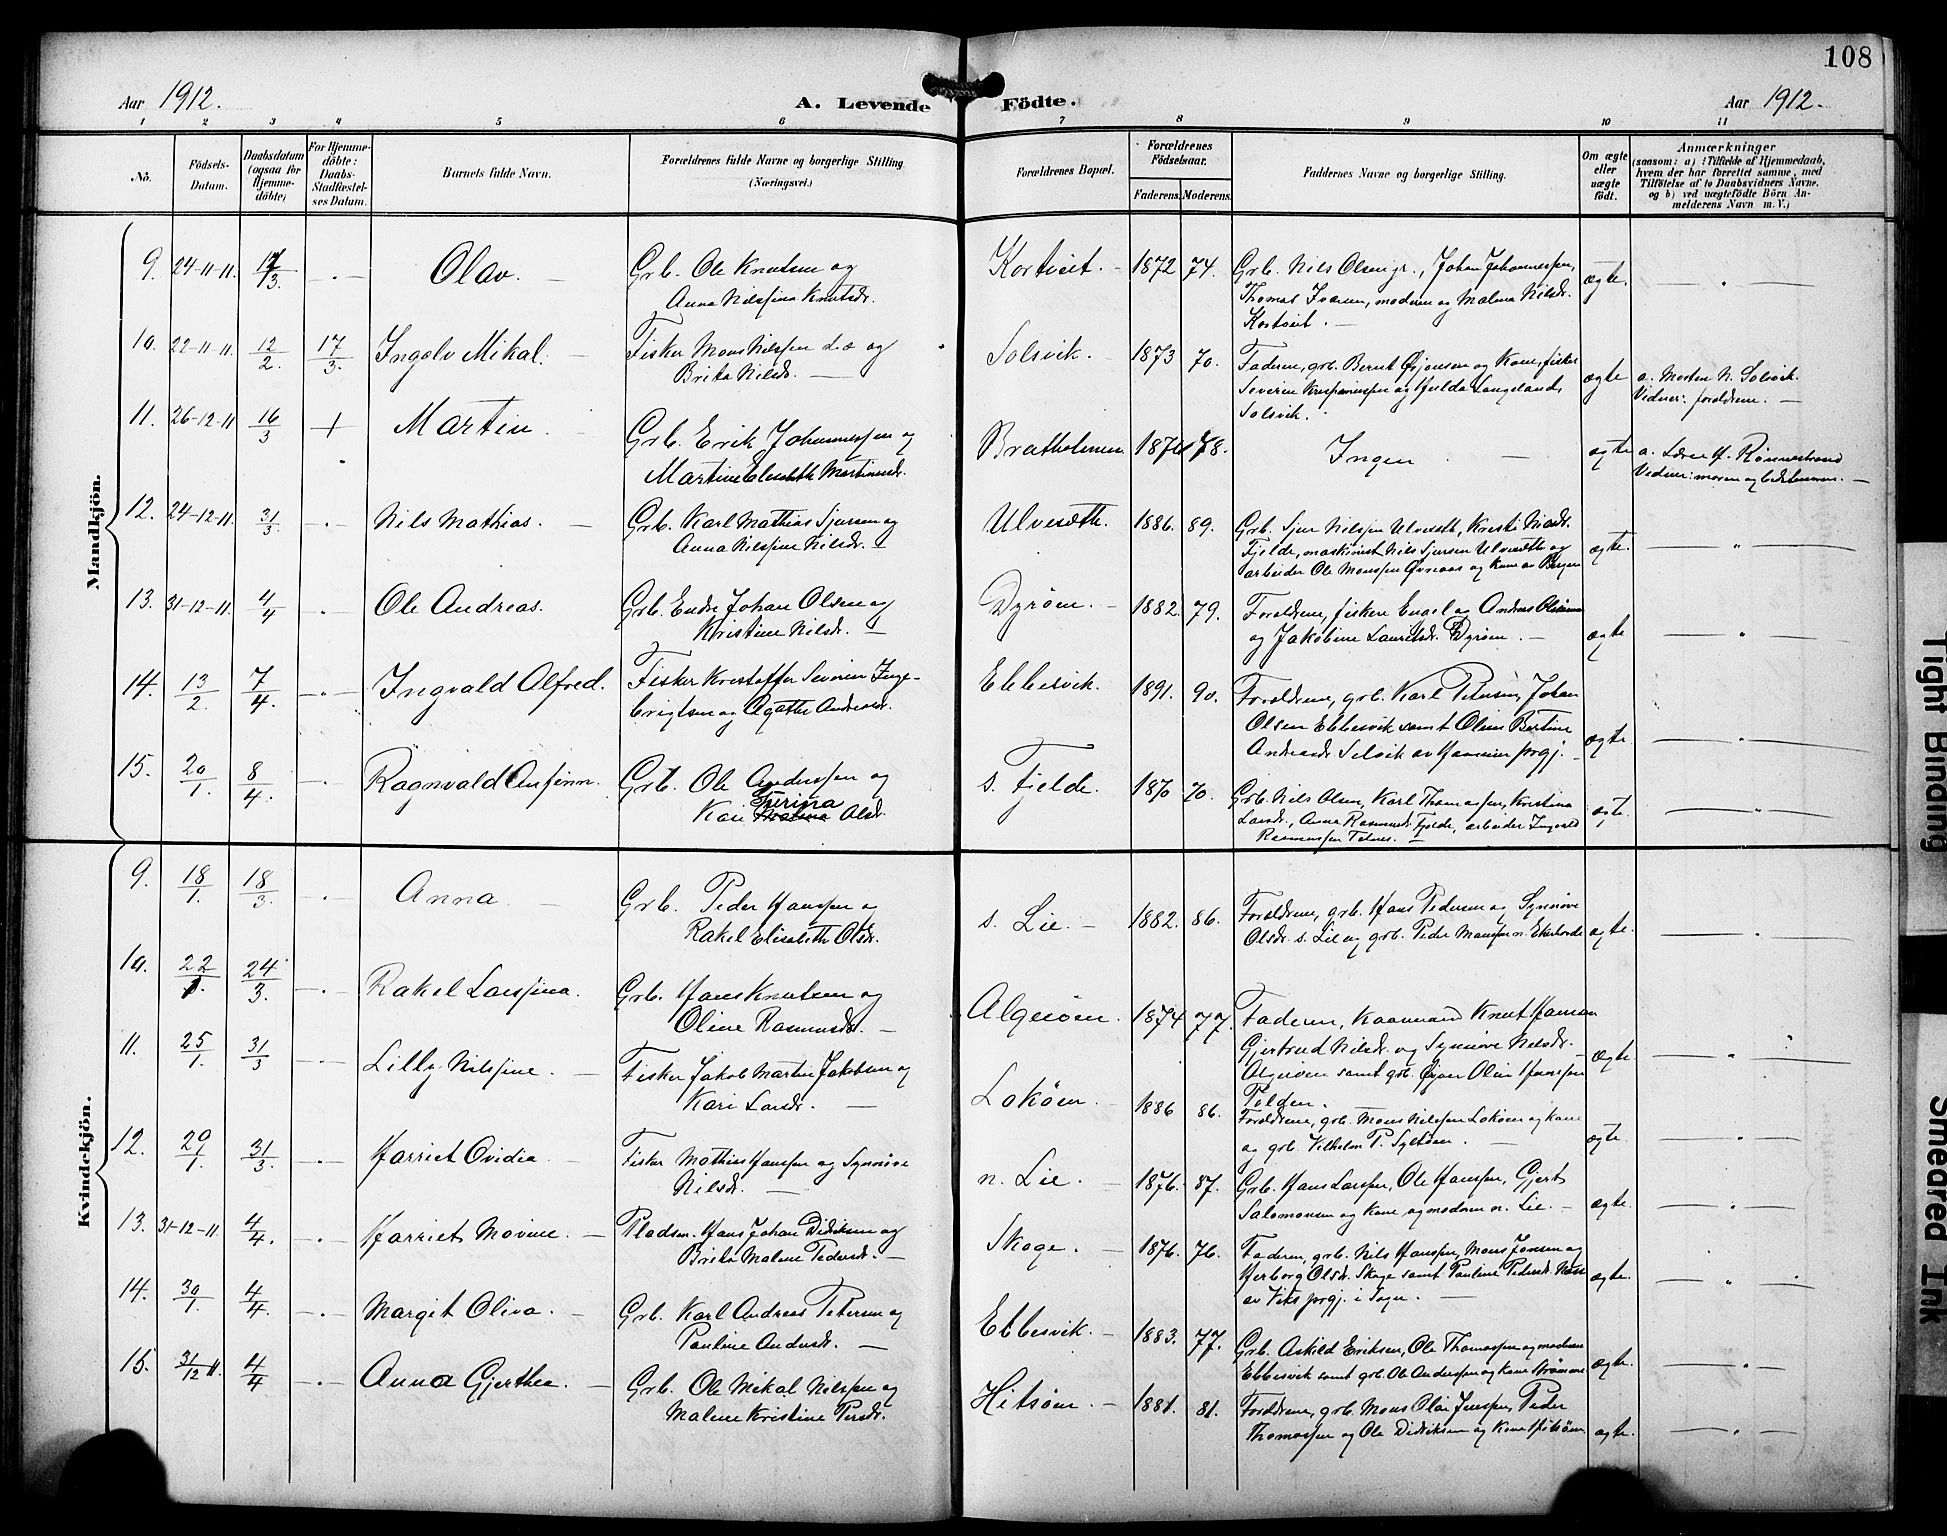 108
Aar 1912.
A. Levende Födte.
Aar 1912.
1 2 3 4 5 6 7 8 9 10 11
No.
Födsels-Datum.
Daabsdatum (ogsaa for Hjemmedöbte)
For Hjemmedöbte: Daabs-Stadfæstelses Datum.
Barnets fulde Navn.
Forældrenes fulde Navne og borgerlige Stilling.
(Næringsvei.)
Forældrenes Bopæl.
Forældrenes Födselsaar.
Faderens. Moderens.
Faddernes Navne og borgerlige Stilling.
Om ægte eller uægte födt.
Anmærkninger
(saasom: a) i Tilfælde af Hjemmedaab,
hvem der har forrettet samme, med
Tilföielse af to Daabsvidners Navne,
og b) ved uægtefödte Börn An-
melderens Navn m. V.)
Mandkjön.
9. 24-11-11. 17/3. Olav. Grb. Ole Knutsen og
Anna Nilsine Knutsdr.
1872 74. Grb. Nils Olsen gr., Johan Johannessen,
Thomas Iversen, moderen og Malene Nilsdr.
ægte.
10. 22-11-11. 12/2. 17/3. Ingolv Mikal. Fisker Mons Nilssen d.æ og
Brita Nilsdr.
Solsvik. 1873 70. Faderen, grb. Bernt Øyjonsen og Kone, fisker
Severin og Hulda Langeland,
Solsvik.
ægte a. Morten N. Solsvik.
Vidner: forældrene.
11. 26-12-11 16/3 + Martin. Grb. Erik Johannessen og
Martine Elisabeth Martinusdr.
Bratholmen 78. Ingen ægte a. Lærer Rønnestrand
Vidner: moren og bedstemoren.
12. 24-12-11. 31/3 Nils Mathias. Grb. Karl Mathias Sjursen og
Anna Nilssine Nilsdr.
Ulveseth. 1886. 89. Grb. Sjur Nilssen Ulveseth, Kristi Nilsdr.
Fjelde, maskinist Nils Sjursen Ulveseth og
arbeider Ole Monssen Øvreaas og kone av Bergen
ægte.
13. 31-12-11. 4/4 Ole Andreas. Grb. Endre Johan Olsen og
Kristine Nilsdr.
Dyrøen. 1882. 79. Forældrene, fiskere Engel og Andreas
og Jakobine Lauritsdr. Dyrøen.
ægte
14. 13/2 7/4. Ingvald Alfred. Fisker Kristoffer Severin Inge-
brigtsen og Agathe Andreasdr.
Ebbesvik. 1891. 90. Forældrene, grb. Karl Petersen, Johan
Olsen Ebbesvik samt Oline Bertine
Andreasdr. Selvik av prgj.
ægte.
15. 20/1 8/4. Ragnvald Ansfinn. Grb. Ole Anderssen og
Kari Gurina Olsdr.
s. Fjelde. 1870 70. Grb. Nils Olsen, Karl Thomassen, Kristina
Larsdr., Anna Rasmusdr. Fjelde, arbeider Ingvald
Rasmussen
ægte.
Kvindekjön.
9. 18/1 18/3. Anna. Grb. Peder Hanssen og
Rakel Elisabeth Olsdr.
s. Lie. 1882. 86. Forældrene, grb. Hans Pedersen og Synnøve
Olsdr. s. Lie og grb. Peder Monssen n. Ekerhovde
ægte.
10. 22/1. 24/3. Rakel Larsina. Grb. Hans Knutsen og
Oline Rasmusdr.
Algerøen. 1874 77. Faderen, Knut Hansen
Gjertrud Nilsdr. og Synnøve Nilsdr.
Algerøen samt grb. Olai Hanssen
Tolden.
ægte
11. 25/1. 31/3 Lilly Nilssine. Fisker Jakob Martin Jakobsen og
Kari Larsdr.
Lokøen. 1886 86. Forældrene, grb. Mons Nilssen Lokøen og kone
og grb. Vilhelm P. Syltøen.
ægte.
12. 20/1. 31/3. Harriet Ovidia. Fisker Mathias Hanssen og Synnøve
Nilsdr.
n. Lie. 1876. 87. Grb. Hans Larssen, Ole Hanssen, Gjert
Salomonsen og kone og moderen n. Lie.
ægte.
13. 31-12-11. 4/4. Harriet Movine. Pladsm. Hans Johan Didriksen og
Brita Malene Pedersdr.
Skoge. 1876. 76. Faderen, grb. Nils Hanssen, Mons Jonsen og
Herborg Olsdr. Skoge samt Pauline Pedersdr.
av Viks prgj. i Sogn.
ægte.
14. 30/1. 4/4. Margit Oliva. Grb. Karl Andreas Petersen og
Pauline Andersdr.
Ebbesvik. 1883. 77. Grb. Askild Eriksen, Ole Thomassen og moderen
Ebbesvik samt grb. Ole Anderssen og kone Strømme
ægte.
15. 31/12 11. 4/4 Anna Gjerthea. Grb. Ole Mikal Nilssen og
Malene Kristine Persdr.
Hitsøen. 1881. 81. Forældrene, grb. Mons Olai Jenssen, Peder
Thomassen og Ole Didriksen og kone Hitsøen.
ægte.
Tight Binding
Smeared Ink